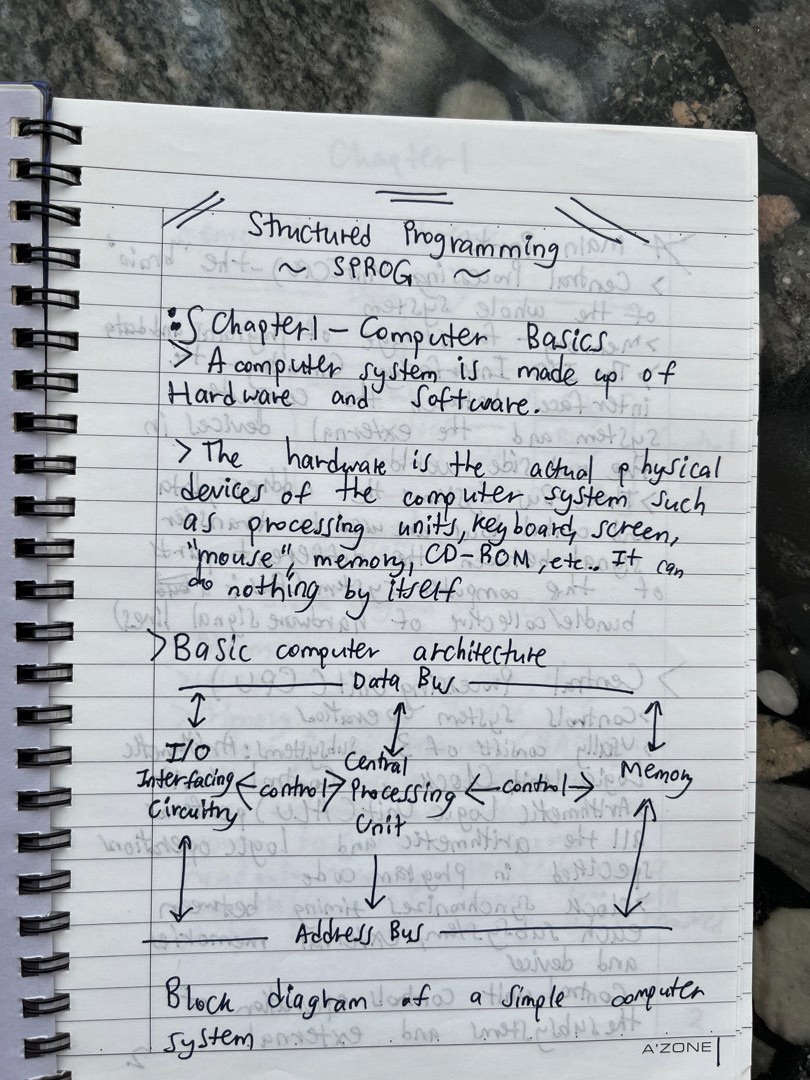 Structured Programming
~ SPROG ~
Chapter 1 – Computer Basics
> A computer system is made up of
Hardware and Software.
> The hardware is the actual physical
devices of the computer system such
as processing units, keyboard, screen,
"mouse", memory, CD-ROM, etc.. It can
do nothing by itself
> Basic computer architecture
Data Bus
I/O
Interfacing
Circuitry
control
Central
Processing
Unit
control
Memory
Address Bus
Block diagram of a simple computer
system
A'ZONE